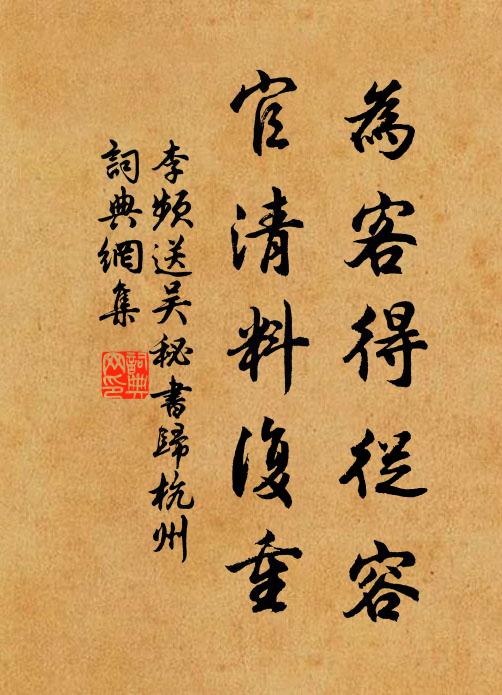 為客得從容
官清料復重
李頻送吴秘書歸杭州
詞典網集
詞典網印